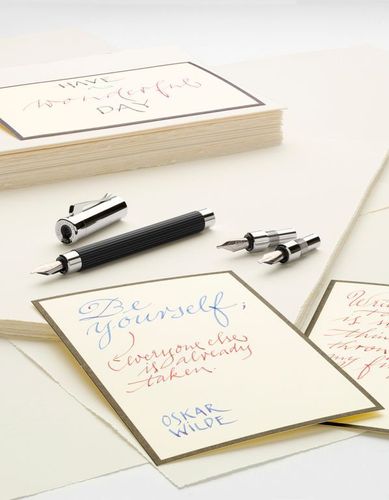 HAVE
a
wonderful
DAY
Be
yourself;
everyone else
is already
taken.
OSKAR
WILDE
is
my